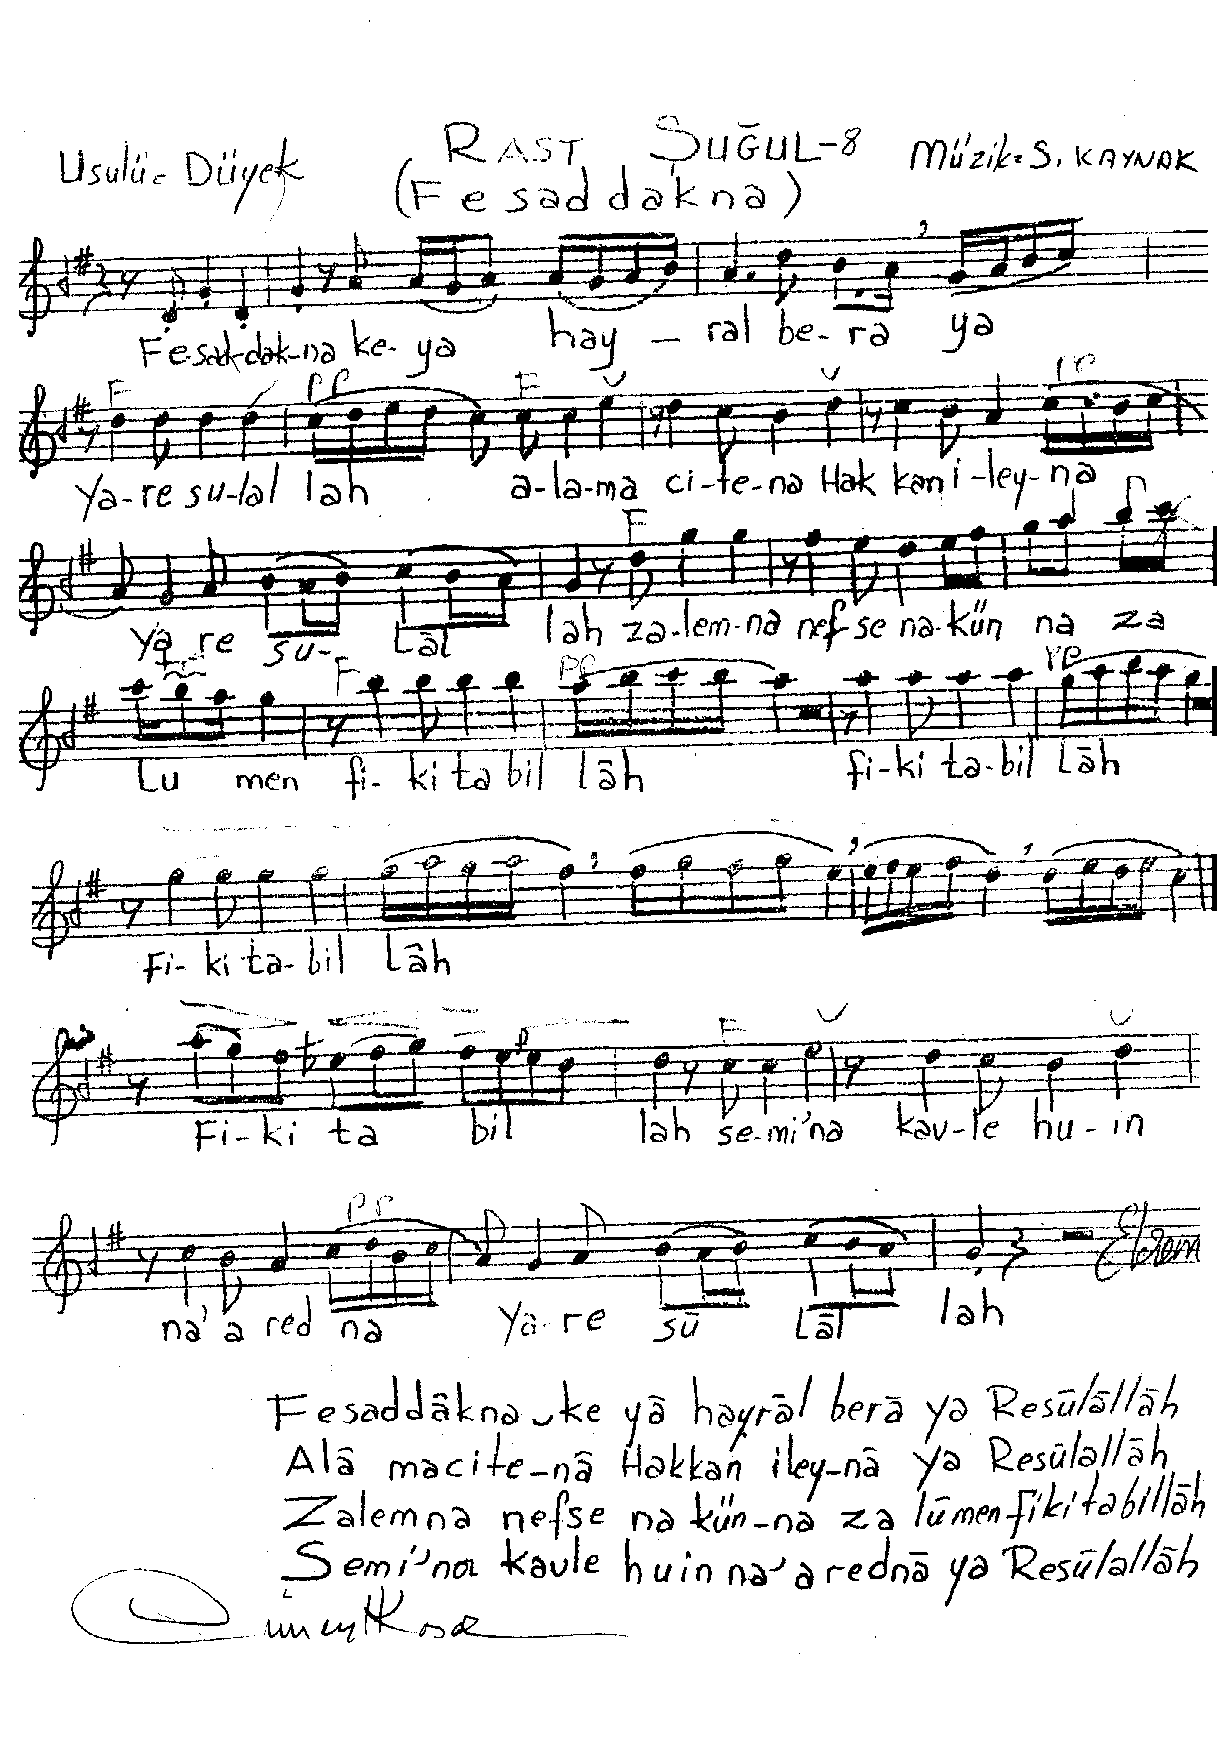 Usulü= Düyek
RAST ŞUĞUL-8
Müzik= S. KAYNAK
(Fesaddakna)
Fe-sad-dak-na ke-ya hay - ral be-ra ya
F pp F
Ya-re su-lal lah a-la-ma ci-te-na Hak kan i-ley-na
F
Ya re su- Lâl lah za-lem-na nef-se na-kün na za
F pp
Lu men fi- ki ta bil lâh fi-ki ta-bil Lâh
Fi- ki ta-bil Lâh
F
Fi-ki ta bil lah se-mi'na kav-le hu-in
pp
na' a red na Ya-re sū Lāl lah
Fesaddâkna ke yâ hayrâl berā ya Resūlâllâh
Alâ macite-nâ Hakkan iley-nâ ya Resūlallâh
Zalemna nefse na kün-na za lūmen fiki tabillâh
Semi'na kavle huin na' a rednâ ya Resūlallâh